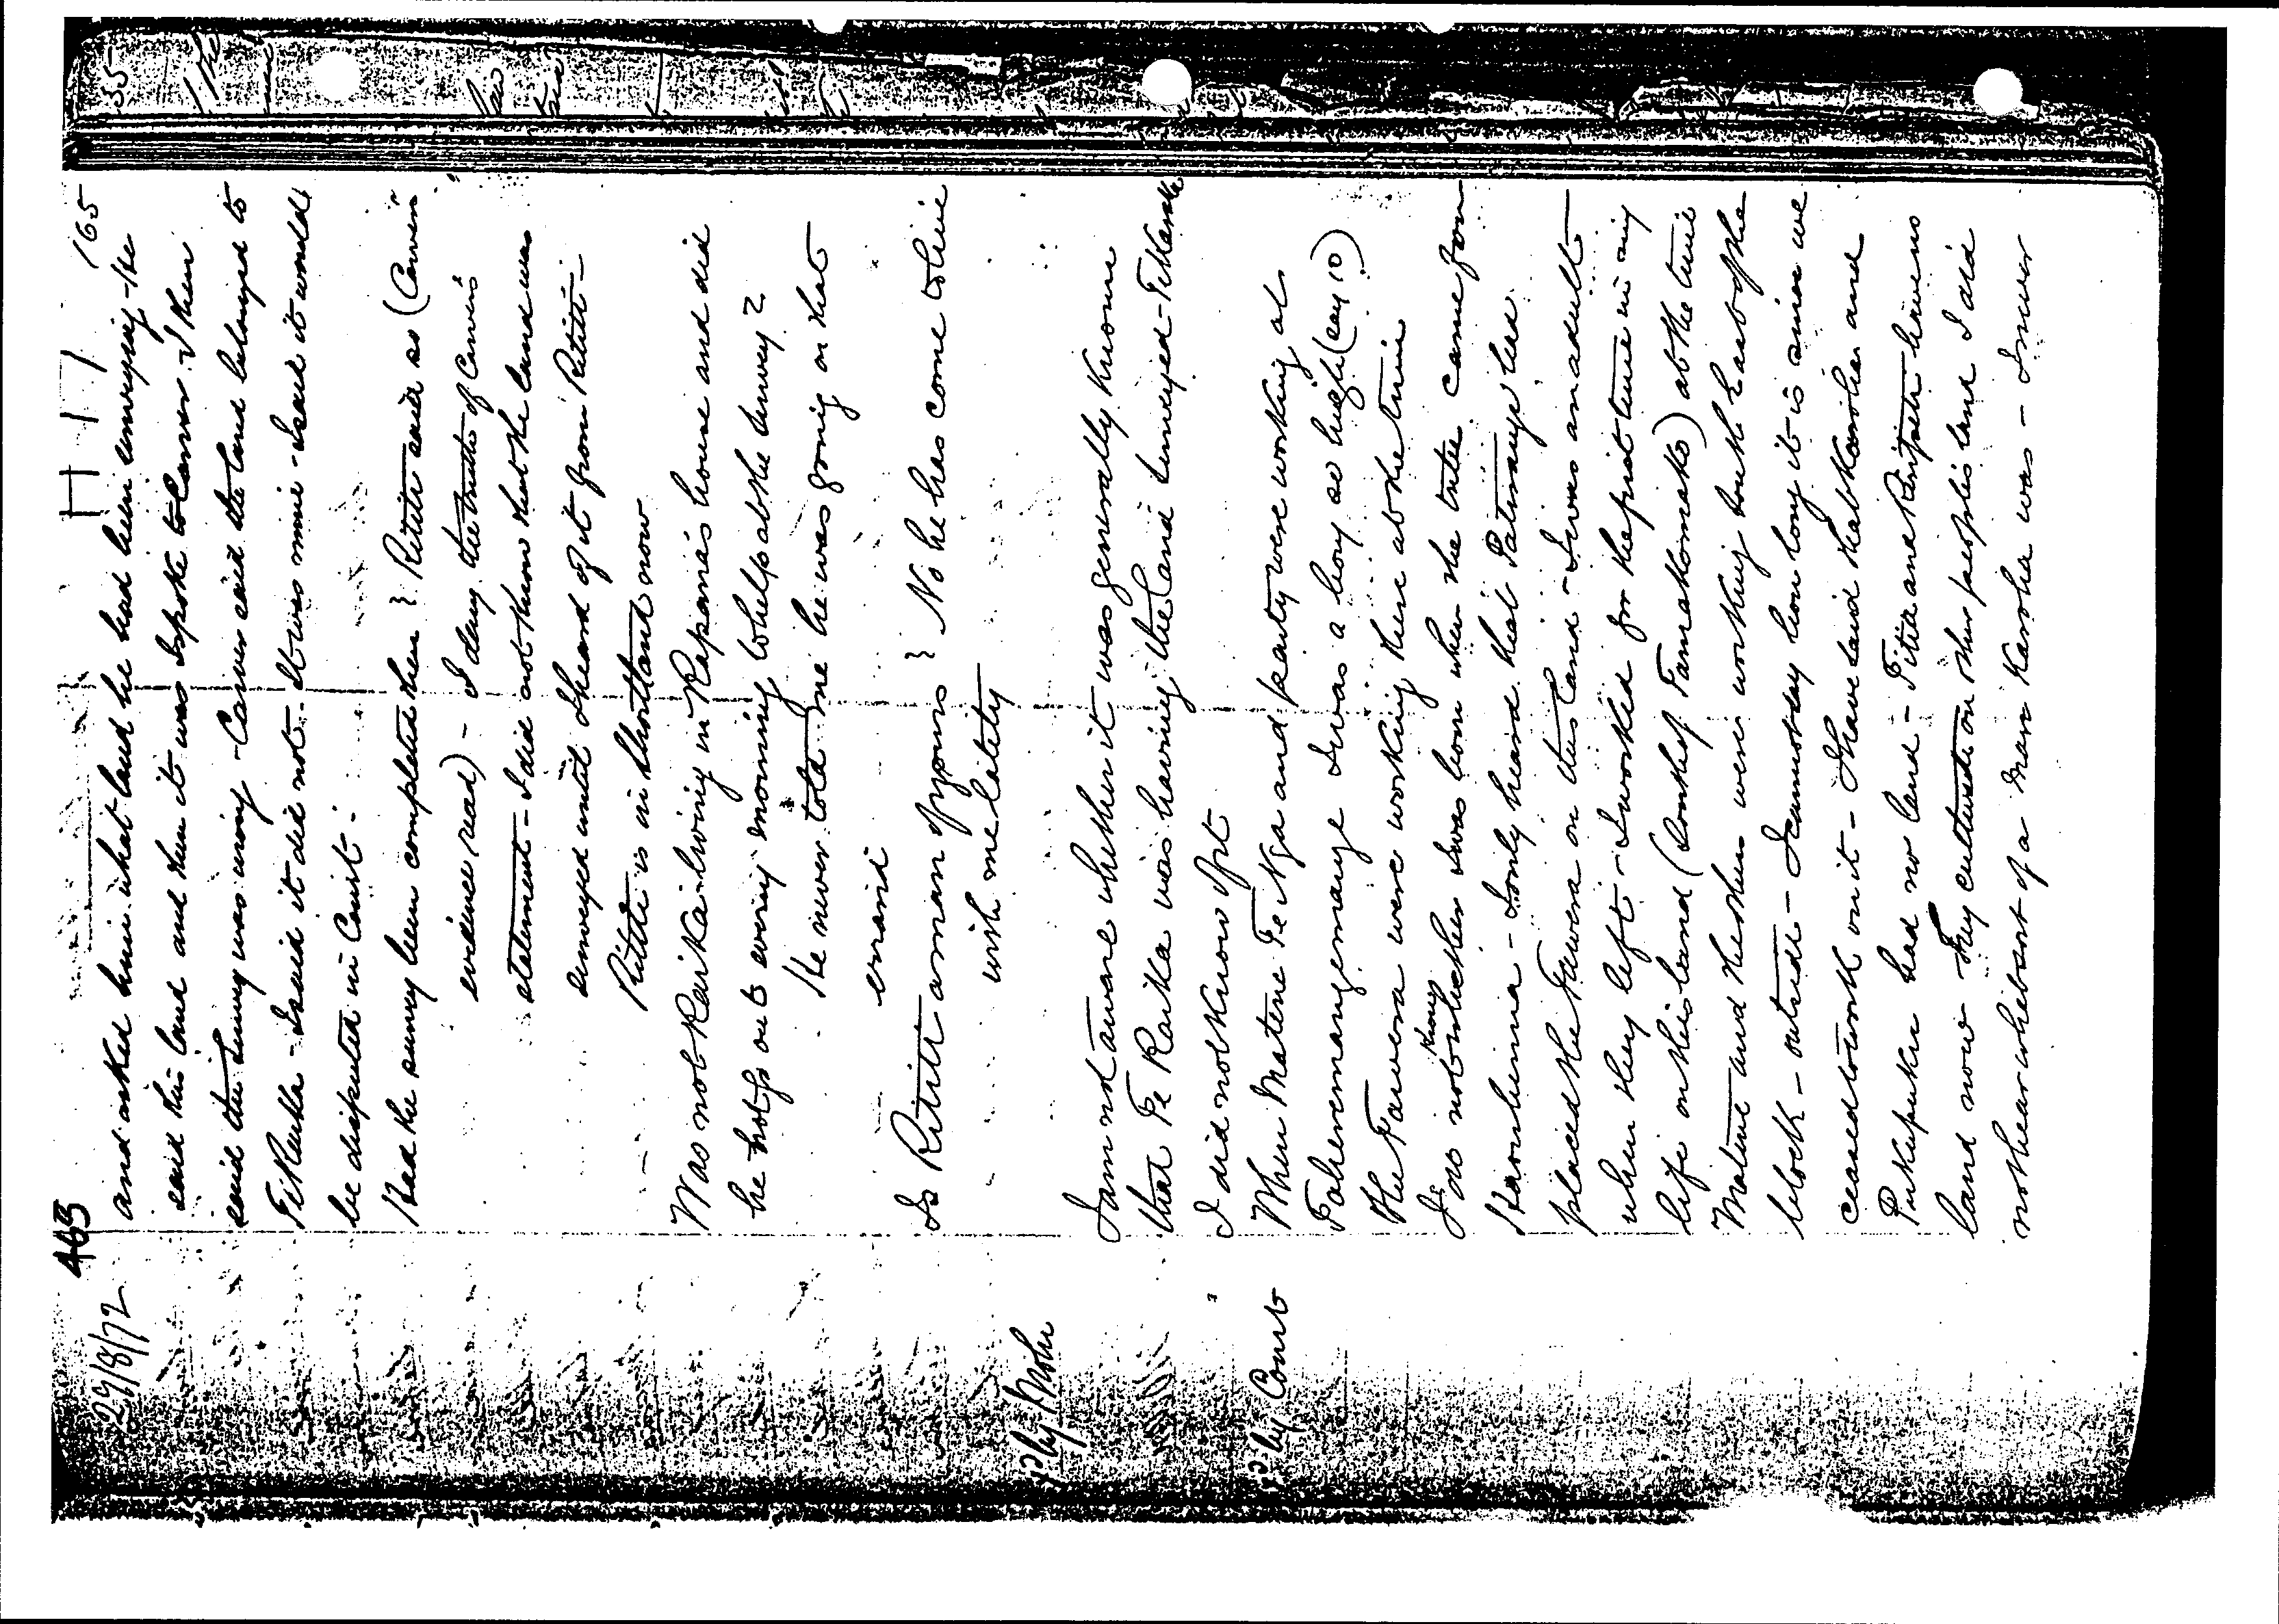 27/8/72 463 H 17 165
and asked him what land he had been surveying - He
said his land and then it was I spoke to Carver - I then
said the survey was wrong - Carver said the land belonged to
Te Reweti - I said it did not. It was mine - I said it would
be disputed in Court -
Had the survey been completed then? Rititi said so (Carver's
evidence read) - I deny the truth of Carver's
statement - I did not know that the land was
surveyed until I heard of it from Rititi -
Rititi is in now
Was not Raika living in Rapana's house and did
he not go out every morning to help at the survey?
He never told me he was going on that
errand
Is Rititi a man of yours? No he has come to live
with me lately
xd by Mohi
I am not aware whether it was generally known
that Te Raika was having the land surveyed -
I did not know of it
xd by Court
When Matene Te Nga and party were working at
I was a boy so high (say 10)
the Tawera were working there at the time
I do not know whether I was born when the tribe came from
Hauhina - I only heard that had
placed the Tawera on this land - I was an adult
when they left - I worked for the first time in my
life on this land (South of ) at the time
Matene and the others were working South East of the
block - outside - I cannot say how long it is since we
ceased to work on it - I have said that Karoha and
Pukupuku had no land - have no
land now They cultivated on other people's land I did
not hear what sort of a man Karoha was - I never